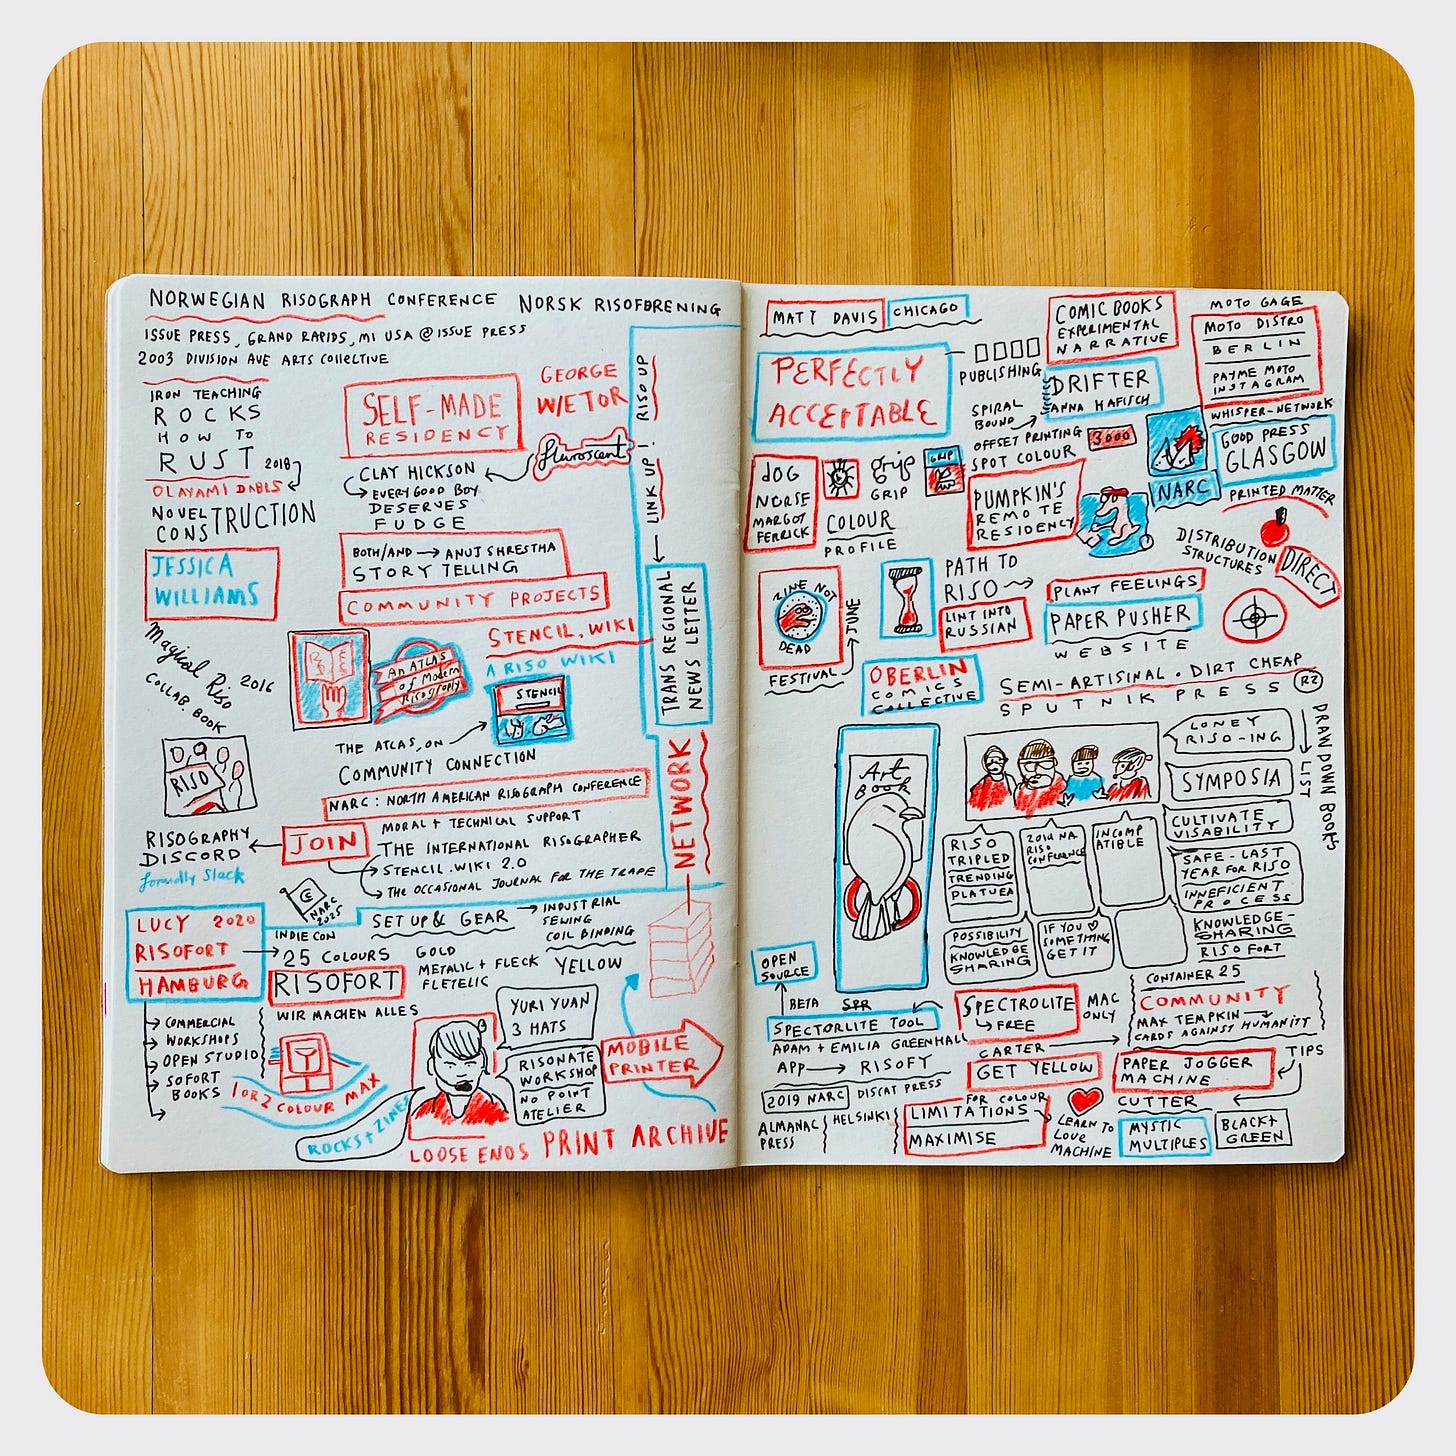 NORWEGIAN RISOGRAPH CONFERENCE NORSK RISOFORENING
ISSUE PRESS, GRAND RAPIDS, MI USA @ ISSUE PRESS
2003 DIVISION AVE ARTS COLLECTIVE
IRON TEACHING
ROCKS
HOW TO
RUST 2018
OLAYAMI DABLS
NOVEL
CONSTRUCTION
SELF-MADE
RESIDENCY
GEORGE
WIETOR
fluroscent
CLAY HICKSON
EVERY GOOD BOY
DESERVES
FUDGE
LINK UP! RISO UP
JESSICA
WILLIAMS
BOTH/AND → ANUJ SHRESTHA
STORY TELLING
COMMUNITY PROJECTS
TRANS REGIONAL
NEWS LETTER
Magical Riso 2016
COLLAB. BOOK
RISO
An ATLAS
of Modern
Risography
STENCIL.WIKI
A RISO WIKI
STENCIL
THE ATLAS, ON
COMMUNITY CONNECTION
NARC: NORTH AMERICAN RISOGRAPH CONFERENCE
NETWORK
MORAL + TECHNICAL SUPPORT
RISOGRAPHY
DISCORD
formally Slack
JOIN
THE INTERNATIONAL RISOGRAPHER
STENCIL.WIKI 2.0
THE OCCASIONAL JOURNAL FOR THE TRADE
NARC
2025
INDIE CON
LUCY 2020
RISOFORT
HAMBURG
SET UP & GEAR → INDUSTRIAL
SEWING
COIL BINDING
25 COLOURS
GOLD
METALIC + FLECK
YELLOW
RISOFORT
WIR MACHEN ALLES
COMMERCIAL
WORKSHOPS
OPEN STUDIO
SOFORT
BOOKS
1 OR 2 COLOUR MAX
YURI YUAN
3 HATS
RISONATE
WORKSHOP
NO POINT
ATELIER
MOBILE
PRINTER
ROCKS + ZINES
LOOSE ENDS PRINT ARCHIVE
MATT DAVIS CHICAGO
PERFECTLY
ACCEPTABLE
PUBLISHING
COMIC BOOKS
EXPERIMENTAL
NARRATIVE
MOTO GAGE
MOTO DISTRO
BERLIN
PAYME MOTO
INSTAGRAM
DRIFTER
ANNA HAFISCH
SPIRAL
BOUND
OFFSET PRINTING
SPOT COLOUR
3000
WHISPER-NETWORK
GOOD PRESS
GLASGOW
NARC
DOG
NURSE
MARGOT
FERRICK
grip
GRIP
GRIP
COLOUR
PROFILE
PUMPKIN'S
REMOTE
RESIDENCY
PRINTED MATTER
DISTRIBUTION
STRUCTURES
DIRECT
ZINE NOT
DEAD
FESTIVAL
JUNE
PATH TO
RISO
LINT INTO
RUSSIAN
PLANT FEELINGS
PAPER PUSHER
WEBSITE
OBERLIN
COMICS
COLLECTIVE
SEMI-ARTISINAL. DIRT CHEAP
SPUTNIK PRESS R2
Art
Book
LONEY
RISO-ING
SYMPOSIA
CULTIVATE
VISABILITY
DRAW DOWN BOOKS
LIST
RISO
TRIPLED
TRENDING
PLATUEA
2014 NA
RISO
CONFERENCE
INCOMP
ATIBLE
SAFE-LAST
YEAR FOR RISO
INEFICIENT
PROCESS
POSSIBILITY
KNOWLEDGE
SHARING
IF YOU ♡
SOMETHING
GET IT
KNOWLEDGE-
SHARING
RISO FORT
OPEN
SOURCE
BETA
SPR
SPECTORLITE TOOL
ADAM + EMILIA GREENHALL
APP → RISOFY
SPECTROLITE
FREE
MAC
ONLY
CONTAINER 25
COMMUNITY
MAX TEMPKIN
CARDS AGAINST HUMANITY
CARTER
GET YELLOW
PAPER JOGGER
MACHINE
TIPS
CUTTER
2019 NARC
DISCAT PRESS
FOR COLOUR
LIMITATIONS
MAXIMISE
ALMANAC
PRESS
HELSINKI
LEARN TO
LOVE
MACHINE
MYSTIC
MULTIPLES
BLACK+
GREEN